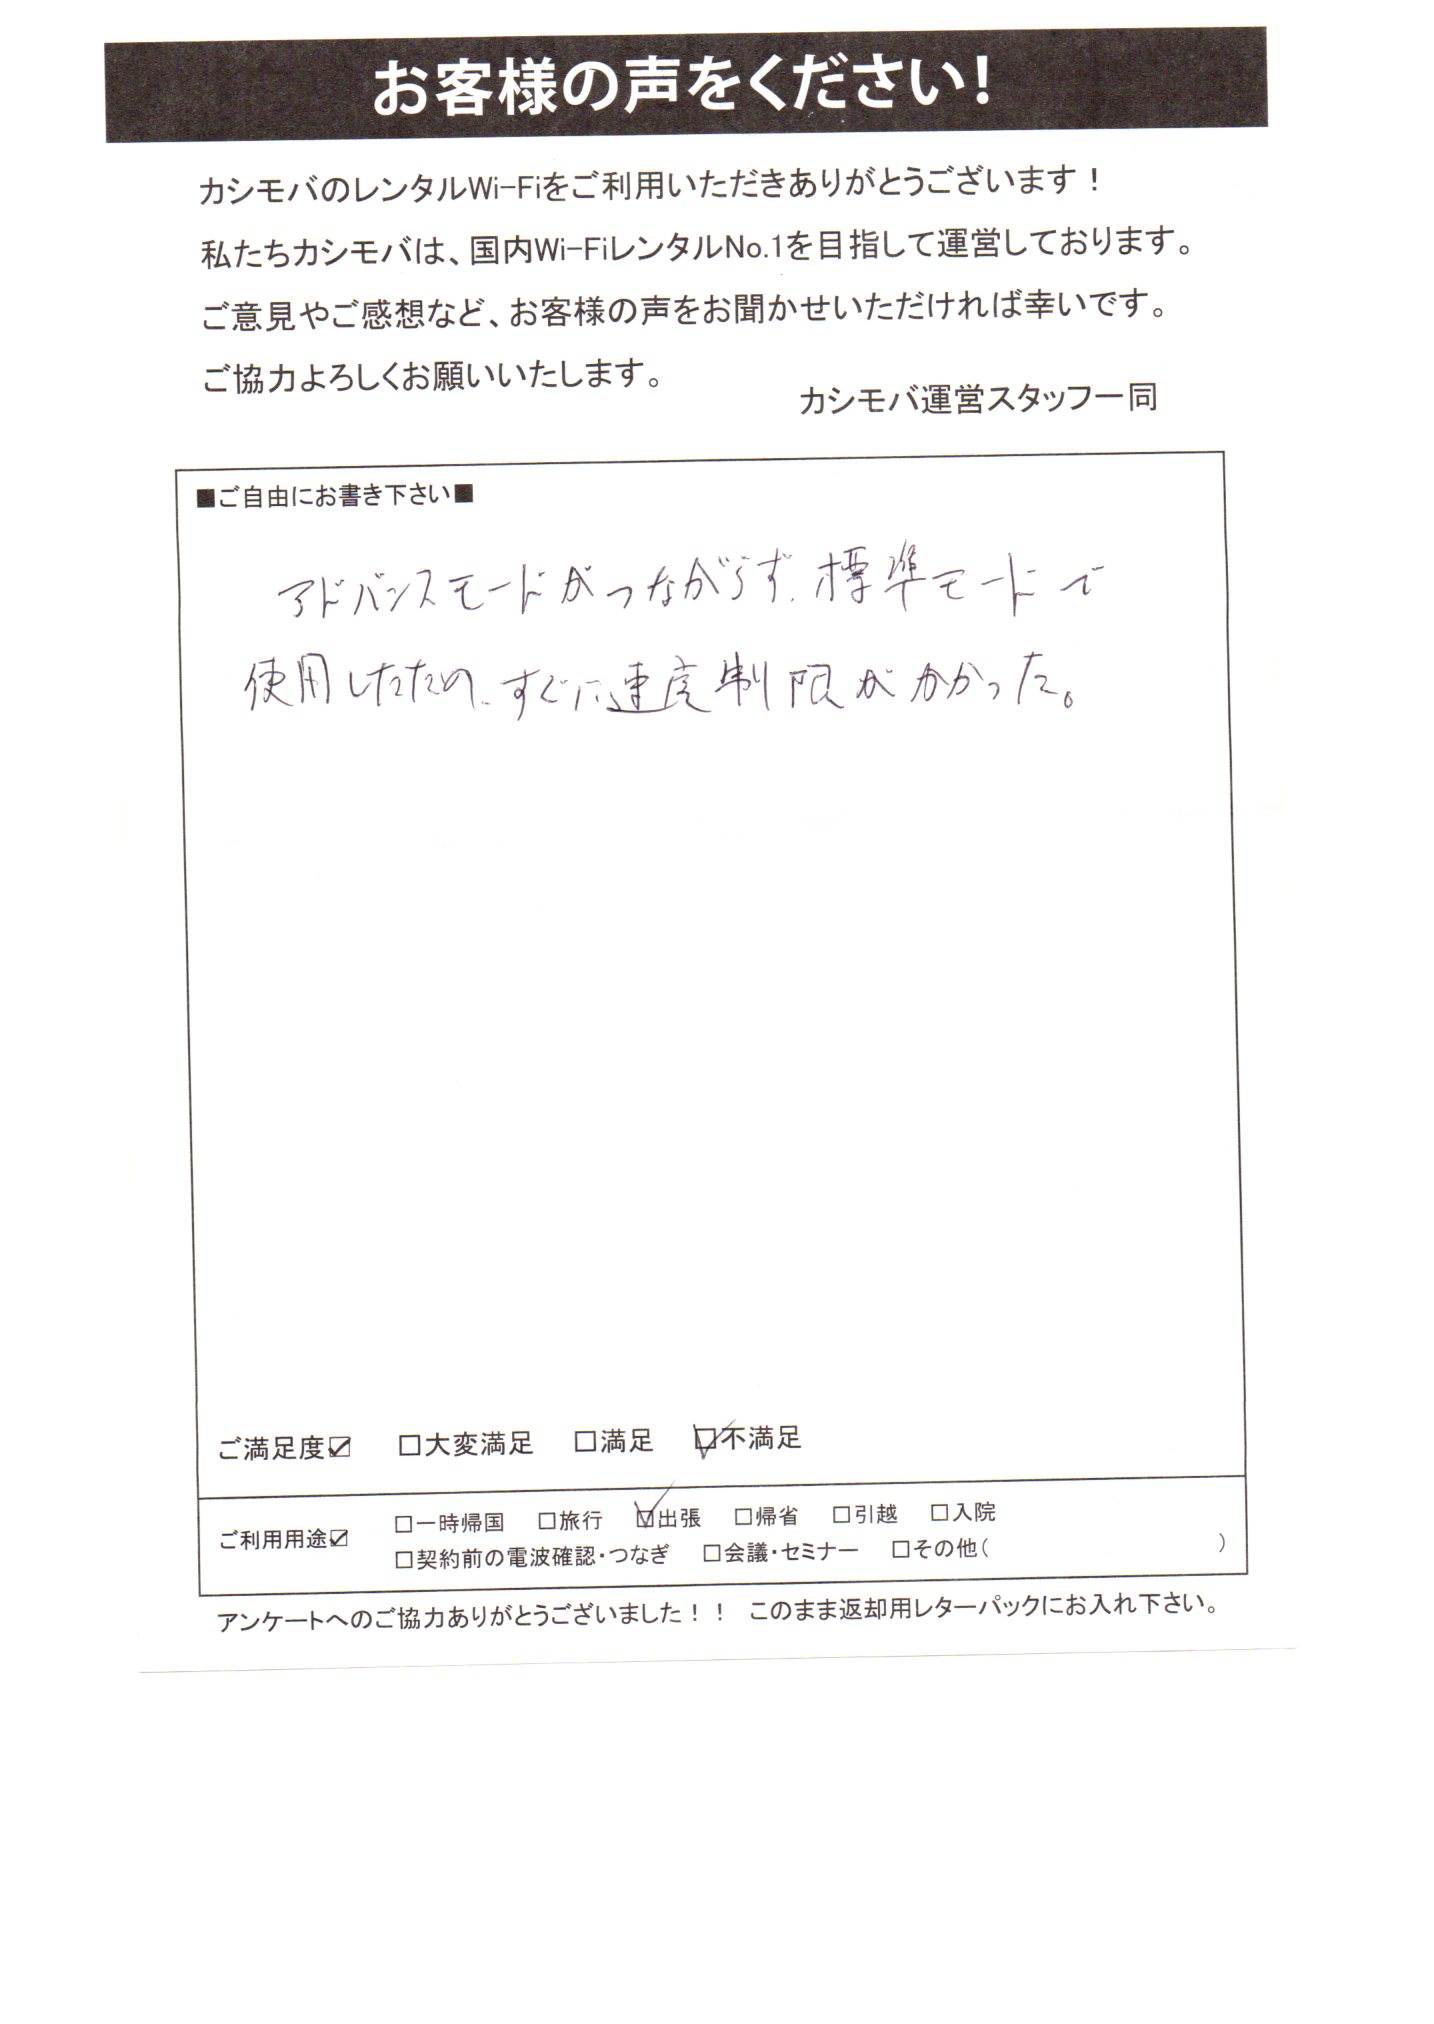 お客様の声をください!
カシモバのレンタルWi-Fiをご利用いただきありがとうございます！
私たちカシモバは、国内Wi-FiレンタルNo.1を目指して運営しております。
ご意見やご感想など、お客様の声をお聞かせいただければ幸いです。
ご協力よろしくお願いいたします。
カシモバ運営スタッフ一同
■ご自由にお書き下さい■
アドバンスモードがつながらず、標準モードで
使用したため、すぐに速度制限がかかった。
ご満足度☑ □大変満足 □満足 ☑不満足
ご利用用途☑ □一時帰国 □旅行 ☑出張 □帰省 □引越 □入院
□契約前の電波確認・つなぎ □会議・セミナー □その他( )
アンケートへのご協力ありがとうございました！！ このまま返却用レターパックにお入れ下さい。